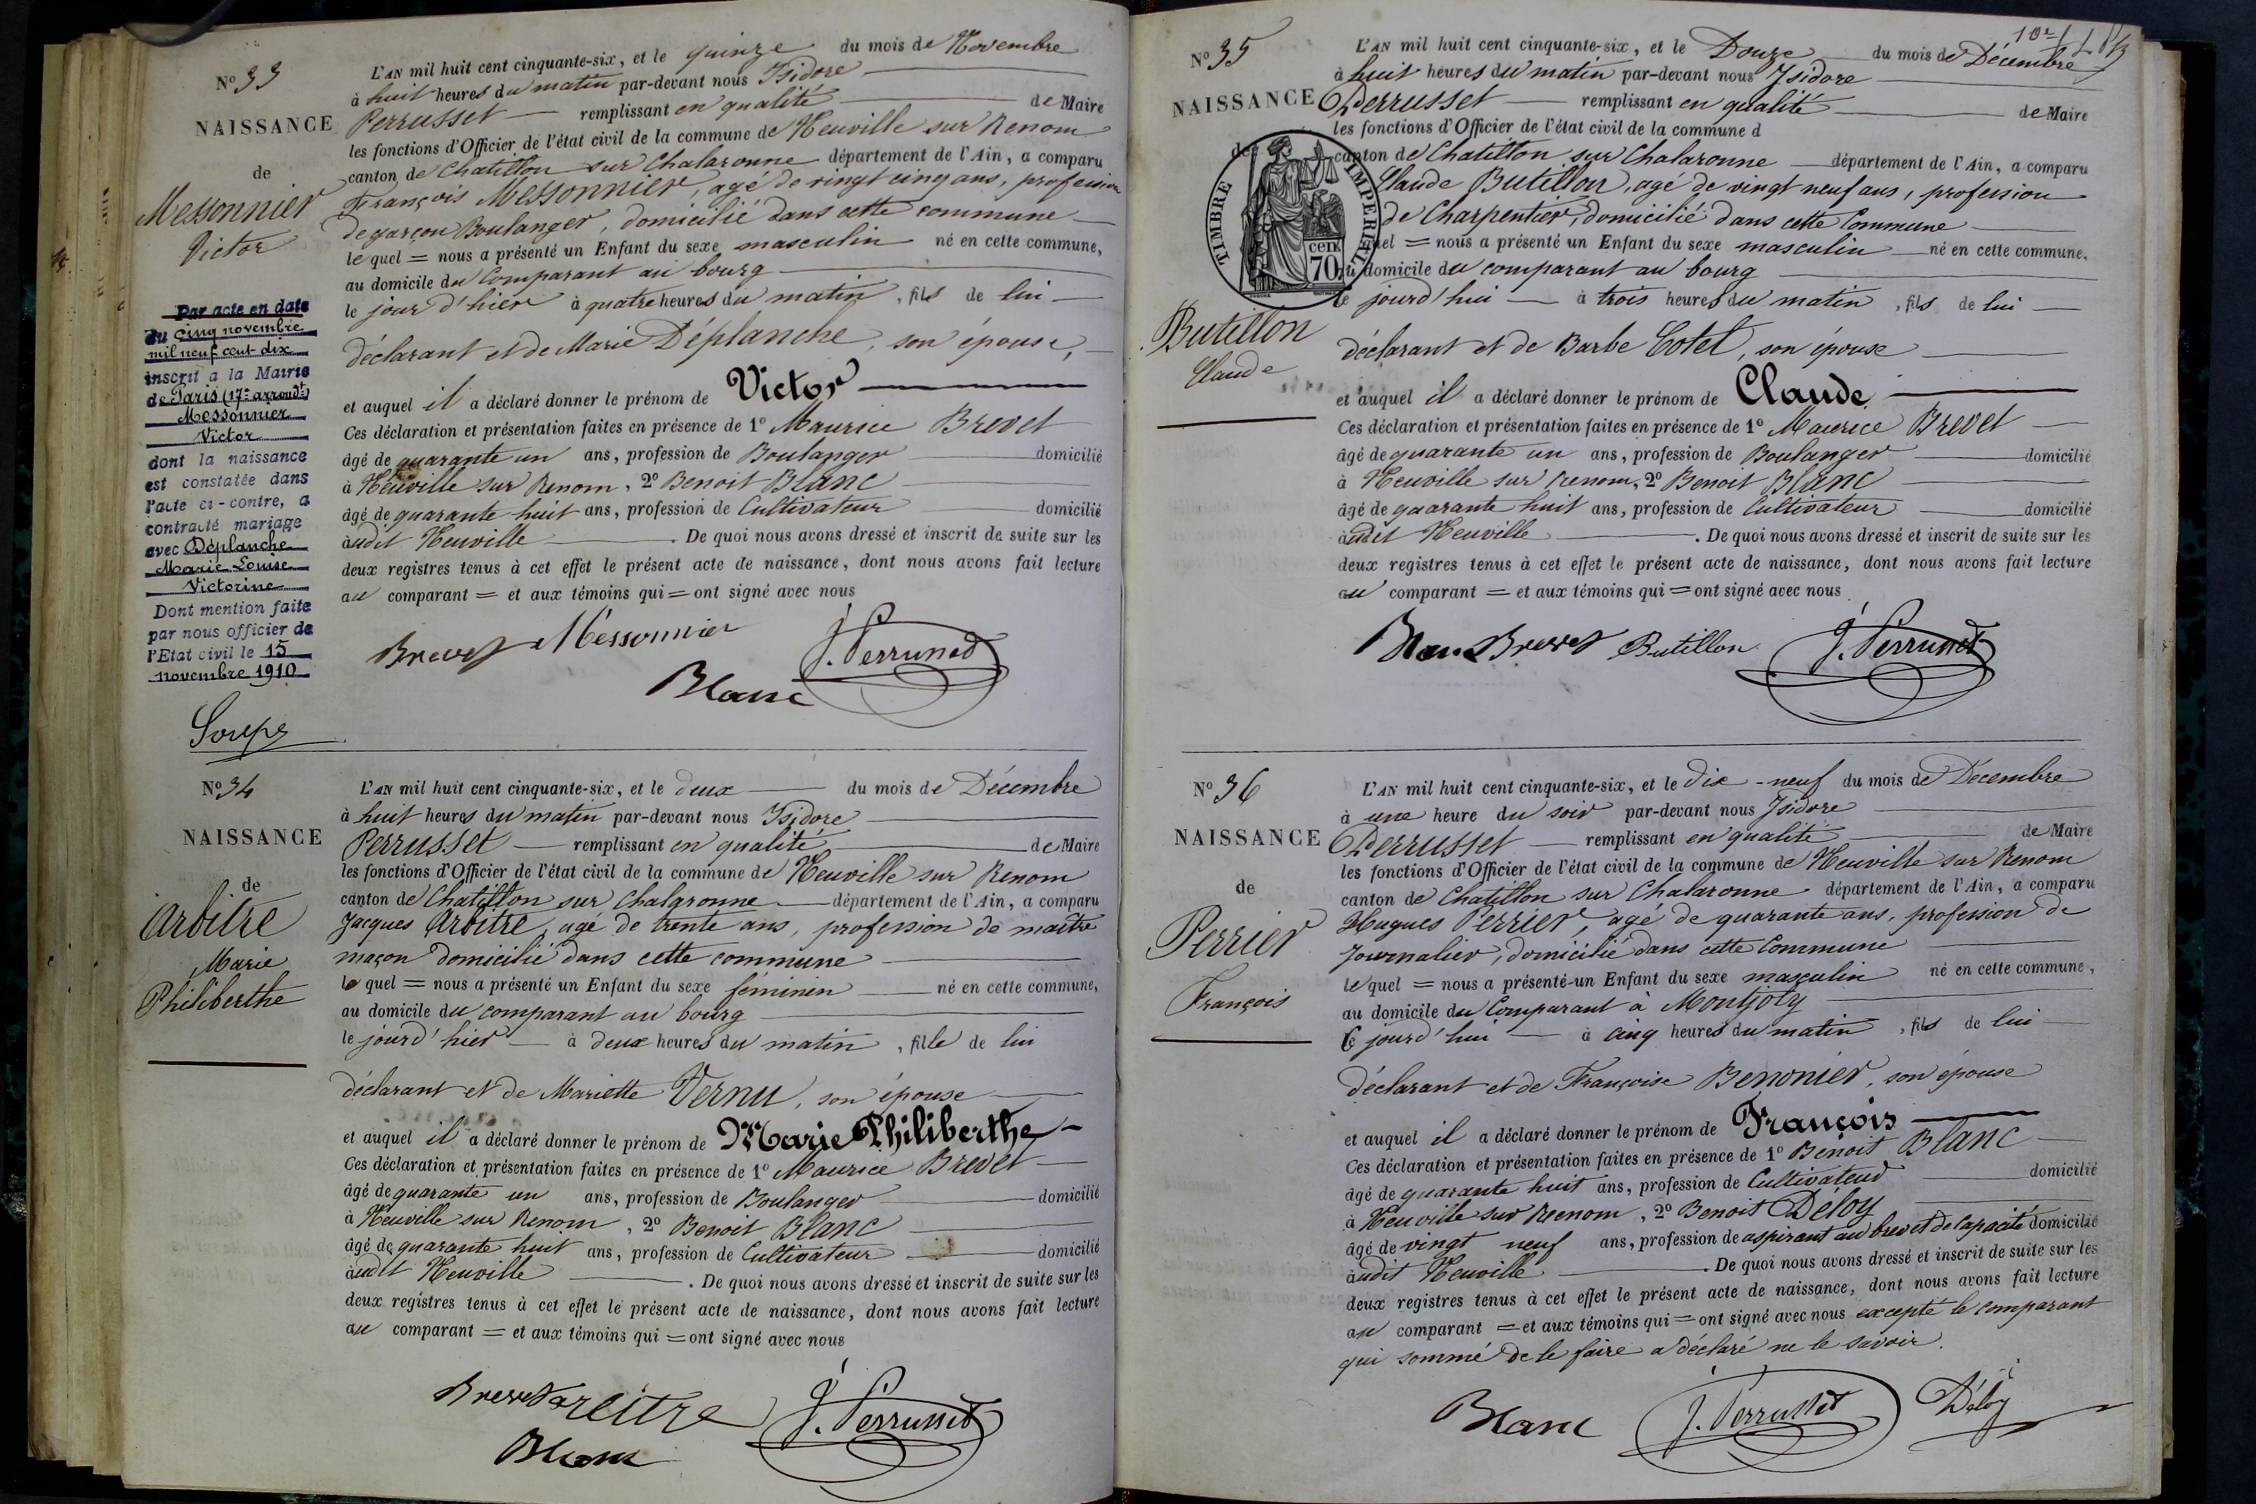 N° 33
NAISSANCE
de
Messonnier
Victor
Par acte en date
du cinq novembre
mil neuf cent dix
inscrit a la Mairie
de Paris (17e arrondt)
Messonnier
Victor
dont la naissance
est constatée dans
l'acte ci-contre, a
contracté mariage
avec Déplanche
Marie Louise
Victorine
Dont mention faite
par nous officier de
l'Etat civil le 15
novembre 1910
L'AN mil huit cent cinquante-six, et le quinze du mois de Novembre
à huit heures du matin par-devant nous Isidore
Perrusset remplissant en qualité de Maire
les fonctions d'Officier de l'état civil de la commune de Neuville sur Renom
canton de Chatillon sur Chalaronne département de l'Ain, a comparu
François Messonnier, agé de vingt cinq ans, profession
de garçon Boulanger, domicilié dans cette commune
le quel = nous a présenté un Enfant du sexe masculin né en cette commune,
au domicile du Comparant au bourg
le jour d'hier à quatre heures du matin, fils de lui
déclarant et de Marie Déplanche, son épouse,
et auquel il a déclaré donner le prénom de Victor
Ces déclaration et présentation faites en présence de 1° Maurice Brevet
âgé de quarante un ans, profession de Boulanger domicilié
à Neuville sur Renom, 2° Benoit Blanc
âgé de quarante huit ans, profession de Cultivateur domicilié
audit Neuville. De quoi nous avons dressé et inscrit de suite sur les
deux registres tenus à cet effet le présent acte de naissance, dont nous avons fait lecture
au comparant = et aux témoins qui = ont signé avec nous
Brevet Messonnier J. Perrusset
Blanc
N° 34
NAISSANCE
de
Arbitre
Marie
Philiberthe
L'AN mil huit cent cinquante-six, et le deux du mois de Décembre
à huit heures du matin par-devant nous Isidore
Perrusset remplissant en qualité de Maire
les fonctions d'Officier de l'état civil de la commune de Neuville sur Renom
canton de Chatillon sur Chalaronne département de l'Ain, a comparu
Jacques Arbitre, agé de trente ans, profession de maitre
maçon domicilié dans cette commune
le quel = nous a présenté un Enfant du sexe féminen né en cette commune,
au domicile du comparant au bourg
le jourd'hier à deux heures du matin, fille de lui
déclarant et de Mariette Vernu, son épouse
et auquel il a déclaré donner le prénom de Marie Philiberthe
Ces déclaration et présentation faites en présence de 1° Maurice Brevet
âgé de quarante un ans, profession de Boulanger domicilié
à Neuville sur Renom, 2° Benoit Blanc
âgé de quarante huit ans, profession de Cultivateur domicilié
audit Neuville. De quoi nous avons dressé et inscrit de suite sur les
deux registres tenus à cet effet le présent acte de naissance, dont nous avons fait lecture
au comparant = et aux témoins qui = ont signé avec nous
Brevet arbitre J. Perrusset
Blanc
N° 35
NAISSANCE
de
TIMBRE IMPERIAL
70 cent
Butillon
Claude
L'AN mil huit cent cinquante-six, et le Douze du mois de Décembre
à huit heures du matin par-devant nous Isidore
Perrusset remplissant en qualité de Maire
les fonctions d'Officier de l'état civil de la commune d
canton de Chatillon sur Chalaronne département de l'Ain, a comparu
Claude Butillon, agé de vingt neuf ans, profession
de Charpentier, domicilié dans cette Commune
quel = nous a présenté un Enfant du sexe masculin né en cette commune,
au domicile du comparant au bourg
le jourd'hui à trois heures du matin, fils de lui
déclarant et de Barbe Cotel, son épouse
et auquel il a déclaré donner le prénom de Claude
Ces déclaration et présentation faites en présence de 1° Maurice Brevet
âgé de quarante un ans, profession de Boulanger domicilié
à Neuville sur renom, 2° Benoit Blanc
âgé de quarante huit ans, profession de Cultivateur domicilié
audit Neuville. De quoi nous avons dressé et inscrit de suite sur les
deux registres tenus à cet effet le présent acte de naissance, dont nous avons fait lecture
au comparant = et aux témoins qui = ont signé avec nous
Blanc Brevet Butillon J. Perrusset
N° 36
NAISSANCE
de
Perrier
François
L'AN mil huit cent cinquante-six, et le dix-neuf du mois de Décembre
à une heure du soir par-devant nous Isidore
Perrusset remplissant en qualité de Maire
les fonctions d'Officier de l'état civil de la commune de Neuville sur Renom
canton de Chatillon sur Chalaronne département de l'Ain, a comparu
Hugues Perrier, agé de quarante ans, profession de
Journalier, domicilié dans cette Commune
le quel = nous a présenté un Enfant du sexe masculin né en cette commune,
au domicile du Comparant à Montjoly
le jourd'hui à cinq heures du matin, fils de lui
déclarant et de Françoise Benonier, son épouse
et auquel il a déclaré donner le prénom de François
Ces déclaration et présentation faites en présence de 1° Benoit Blanc
âgé de quarante huit ans, profession de Cultivateur domicilié
à Neuville sur Renom, 2° Benoit Déloy
âgé de vingt neuf ans, profession de aspirant au brevet de Capacité domicilié
audit Neuville. De quoi nous avons dressé et inscrit de suite sur les
deux registres tenus à cet effet le présent acte de naissance, dont nous avons fait lecture
au comparant = et aux témoins qui = ont signé avec nous excepté le comparant
qui sommé de le faire a déclaré ne le savoir.
Blanc J. Perrusset Déloy